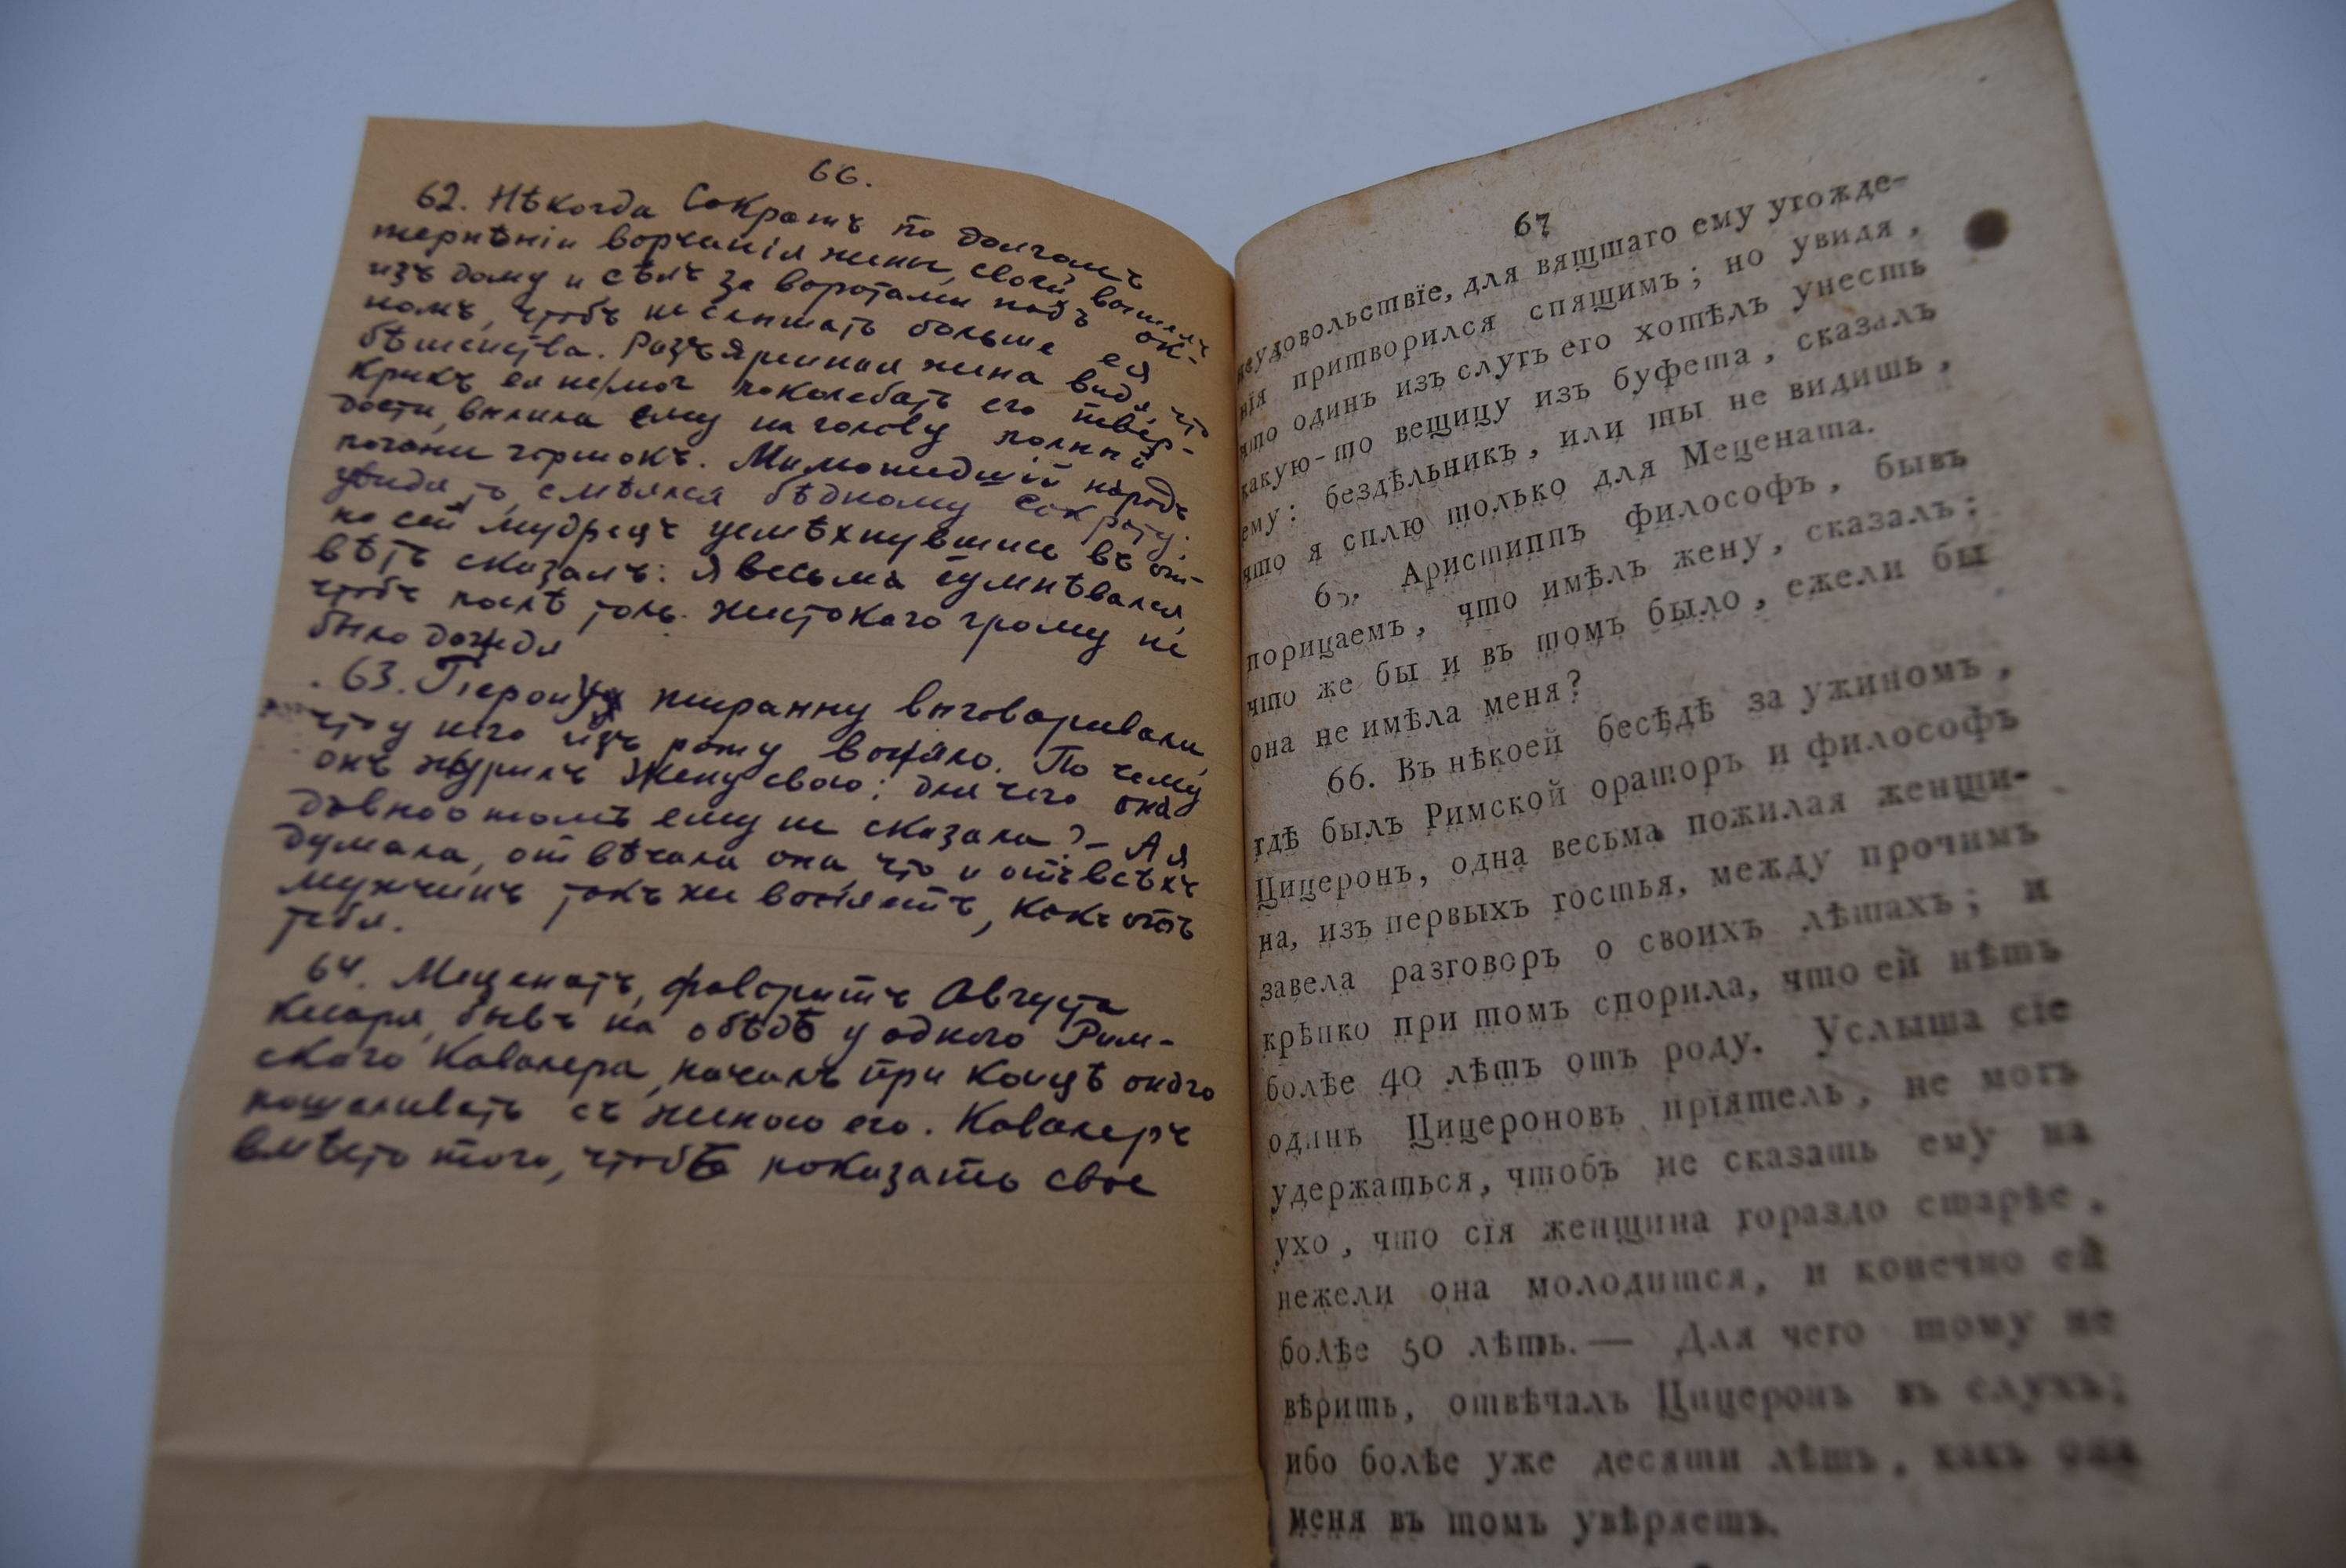 66.
62. Нѣкогда Сократъ по долгомъ
терпѣніи ворчанія жены своей вышелъ
изъ дому и сѣлъ за воротами подъ ок-
номъ, чтобъ не слышать больше ея
бѣшенства. Разъяренная жена видя, что
крикъ ея не мог поколебать его твер-
дости, вылила ему на голову полный
помои горшокъ. Мимошедшій народъ
увидя то, смѣялся бѣдному Сократу;
но сей мудрецъ усмѣхнувшись въ от-
вѣтъ сказалъ: я весьма сумнѣвался,
чтобъ послѣ толь жестокаго грому не
было дождя
63. Гіерону тиранну выговаривали,
что у него изъ роту воняло. По чему
онъ журилъ жену свою: для чего она
давно о томъ ему не сказала? – А я
думала, отвѣчала она, что и отъ всѣхъ
мужчинъ такъ же воняетъ, какъ отъ
тебя.
64. Меценатъ, фаворитъ Августа
Кесаря, бывъ на обѣдѣ у одного Рим-
скаго Кавалера, началъ при концѣ онаго
пошаливать съ женою его. Кавалеръ
вмѣсто того, чтобъ показать свое
67
неудовольствіе, для вящшаго ему угожде-
нія притворился спящимъ; но увидя,
что одинъ изъ слугъ его хотѣлъ унесть
какую-то вещицу изъ буфета, сказалъ
ему: бездѣльникъ, или ты не видишь,
что я сплю только для Мецената.
65. Аристиппъ философъ, бывъ
порицаемъ, что имѣлъ жену, сказалъ:
что же бы и въ томъ было, ежели бы
она не имѣла меня?
66. Въ нѣкоей бесѣдѣ за ужиномъ,
гдѣ былъ Римской ораторъ и философъ
Цицеронъ, одна весьма пожилая женщи-
на, изъ первыхъ гостья, между прочимъ
завела разговоръ о своихъ лѣтахъ; и
крѣпко при томъ спорила, что ей нѣтъ
болѣе 40 лѣтъ отъ роду. Услыша сіе
одинъ Цицероновъ пріятель, не могъ
удержаться, чтобъ не сказать ему на
ухо, что сія женщина гораздо старѣе,
нежели она молодится, и конечно ей
болѣе 50 лѣтъ. — Для чего тому не
вѣрить, отвѣчалъ Цицеронъ въ слухъ;
ибо болѣе уже десяти лѣтъ, какъ она
меня въ томъ увѣряетъ.